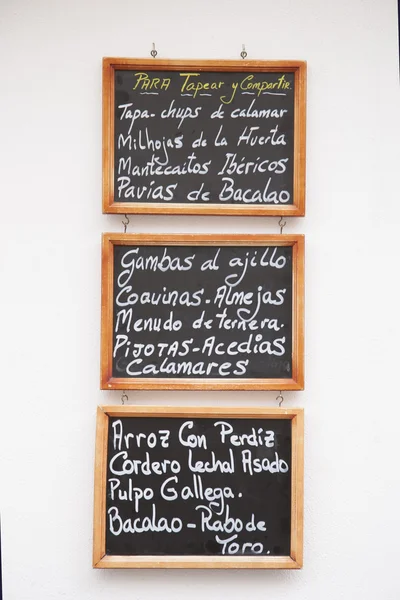 PARA Tapear y Compartir
Tapa-chups de calamar
Milhojas de la Huerta
Mantecaitos Ibéricos
Pavías de Bacalao
Gambas al ajillo
Coquinas-Almejas
Menudo de ternera.
Pijotas-Acedias
Calamares
Arroz Con Perdiz
Cordero Lechal Asado
Pulpo Gallega.
Bacalao-Rabo de
Toro.